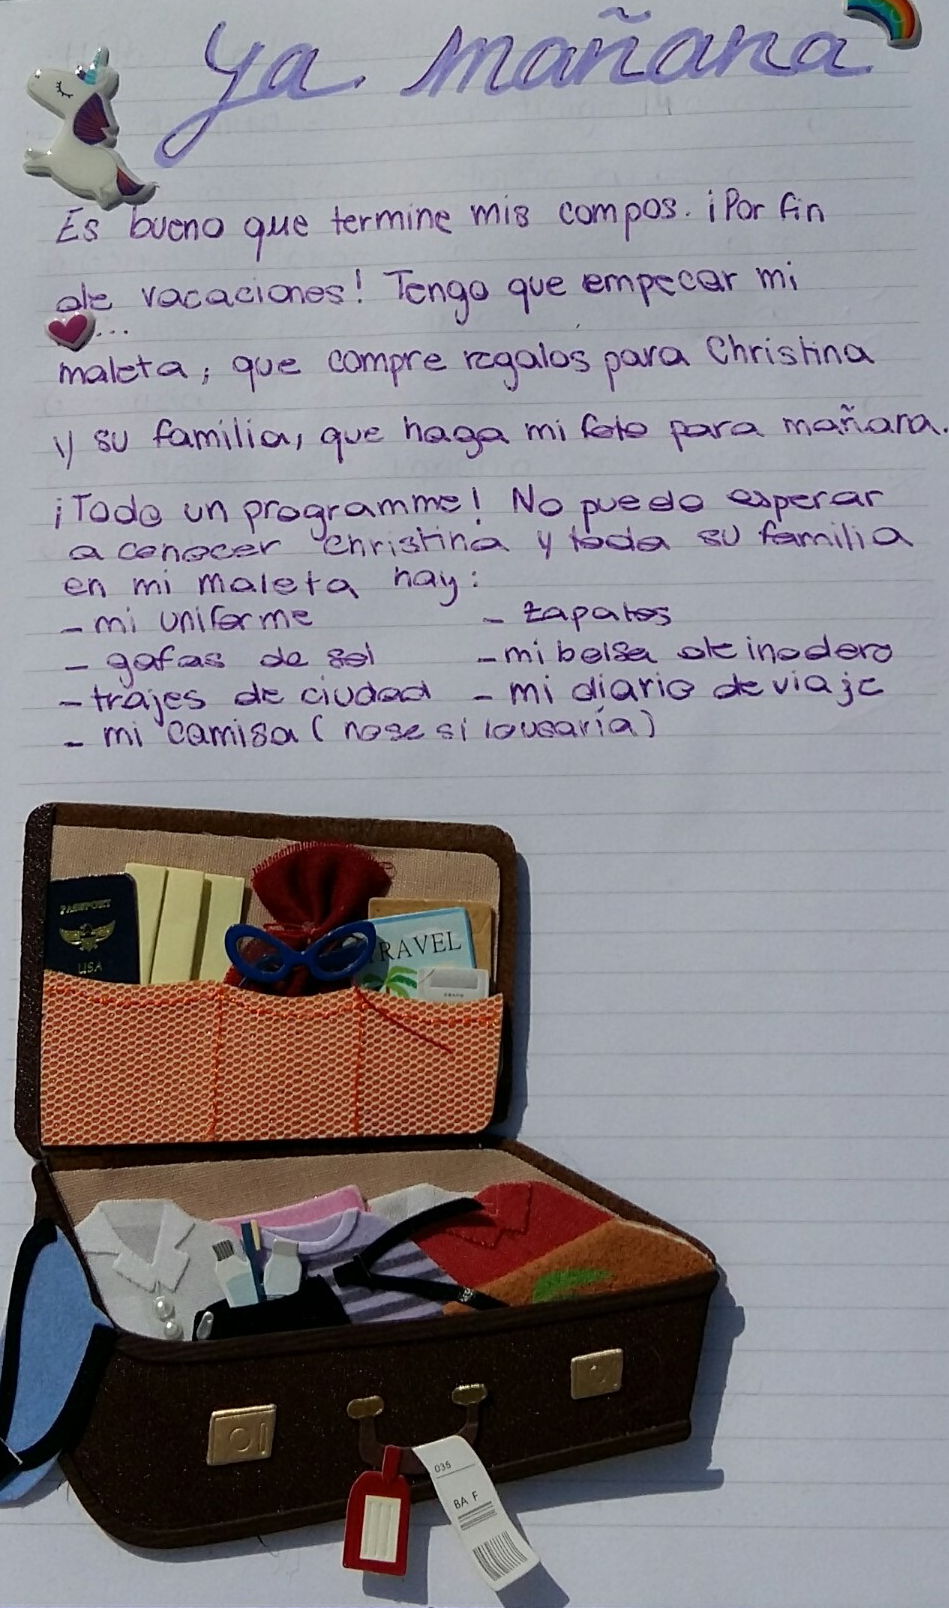 Ya mañana
Es bueno que termine mis compos. ¡Por fin
de vacaciones! Tengo que empecar mi
...
maleta, que compre regalos para Christina
y su familia, que haga mi foto para mañana.
¡Todo un programme! No puedo esperar
a conocer Christina y toda su familia
en mi maleta hay:
- mi uniforme - zapatos
- gafas de sol - mi bolsa de inodero
- trajes de ciudad - mi diario de viaje
- mi camisa (nose si lousaría)
PASSPORT
USA
TRAVEL
035
BA F